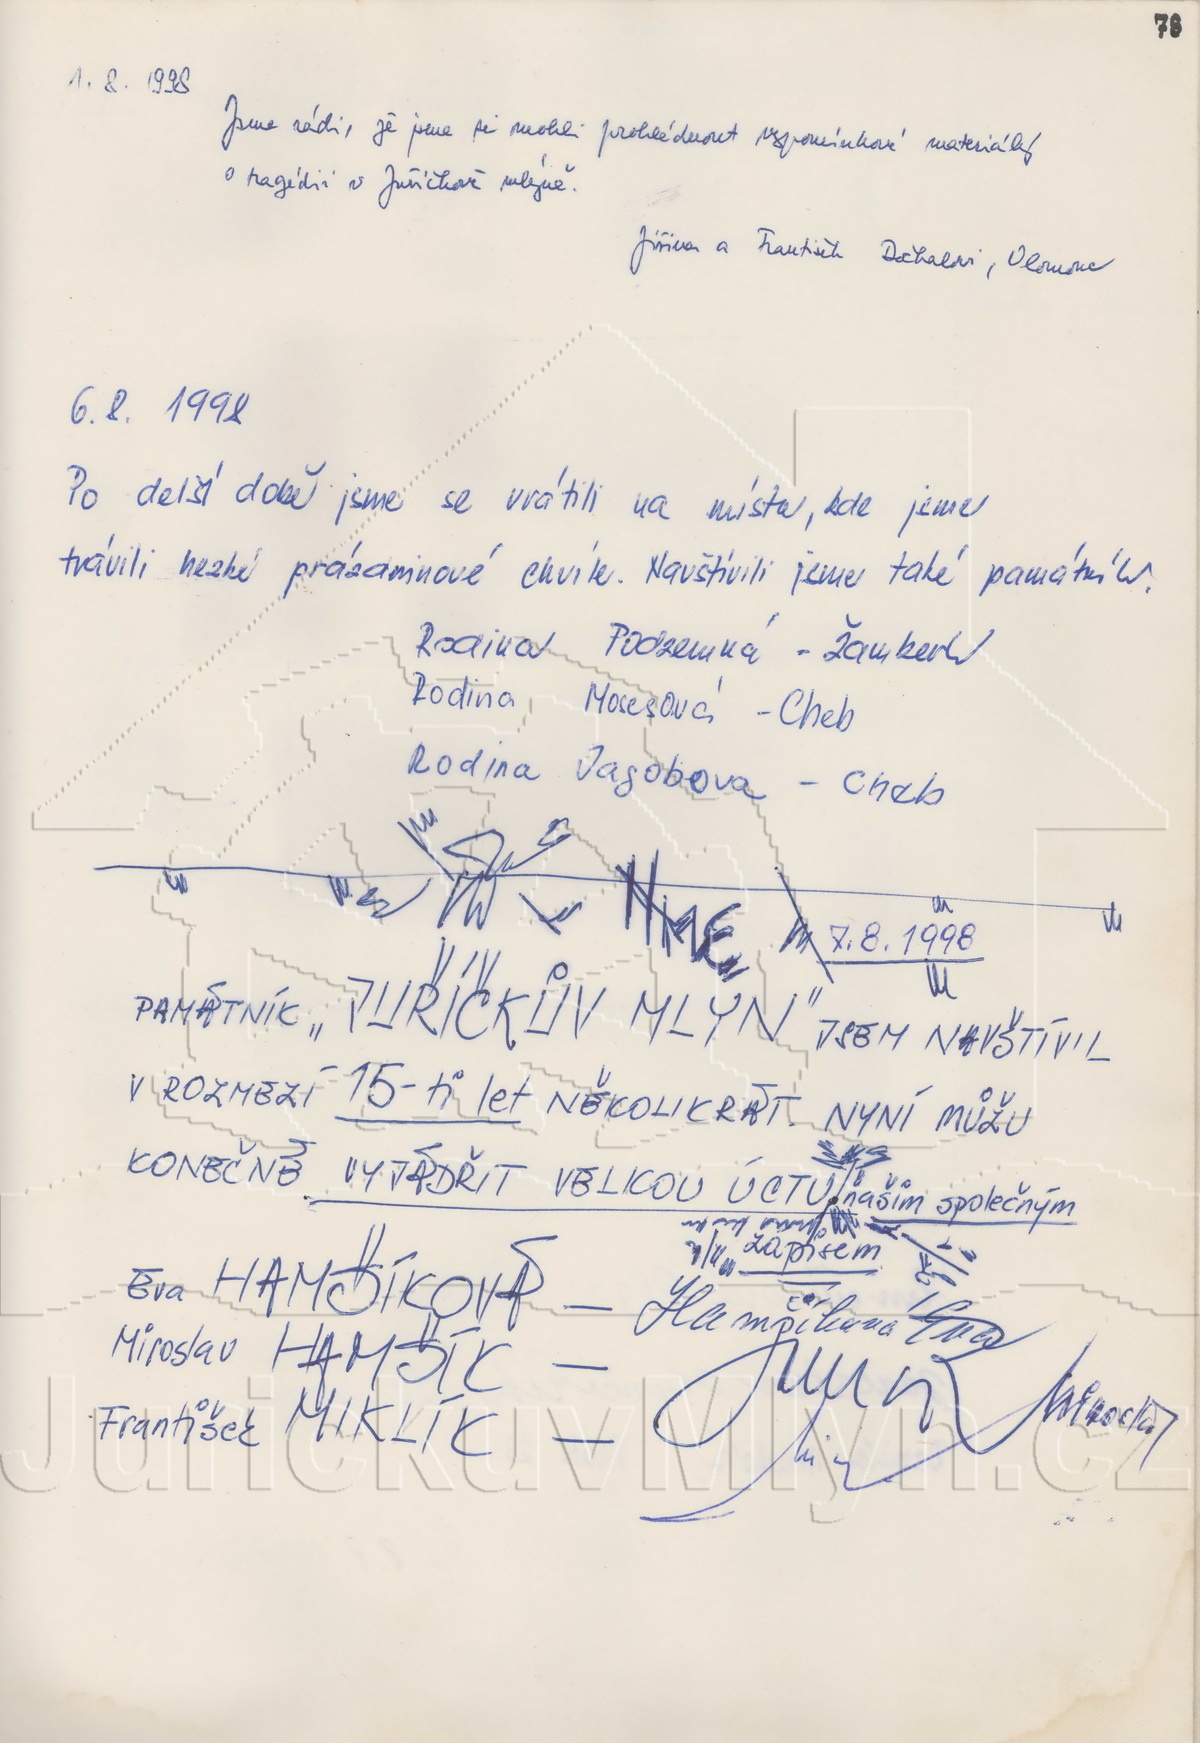 78
1. 8. 1998
Jsme rádi, že jsme si mohli prohlédnout vzpomínkové materiály
o tragédii v Juříčkově mlýně.
Jiřina a František Dočkalovi, Olomouc
6. 8. 1998
Po delší době jsme se vrátili na místa, kde jsme
trávili hezké prázdninové chvíle. Navštívili jsme také památník.
Rodina Podzemná - Žamberk
Rodina Mosesová - Cheb
Rodina Jagobova - Cheb
7. 8. 1998
PAMÁTNÍK „JUŘÍČKŮV MLÝN" JSEM NAVŠTÍVIL
V ROZMEZÍ 15-ti let NĚKOLIKRÁT. NYNÍ MŮŽU
KONEČNĚ VYJÁDŘIT VELKOU ÚCTU našim společným
zápisem
Eva HAMŠÍKOVÁ — Hamšíková Eva
Miroslav HAMŠÍK —
František MIKLÍK —
JurickuvMlyn.cz